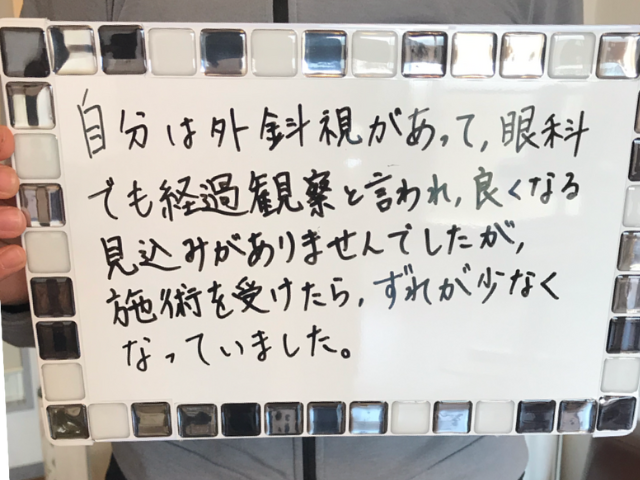 自分は外斜視があって,眼科
でも経過観察と言われ,良くなる
見込みがありませんでしたが,
施術を受けたら,ずれが少なく
なっていました。